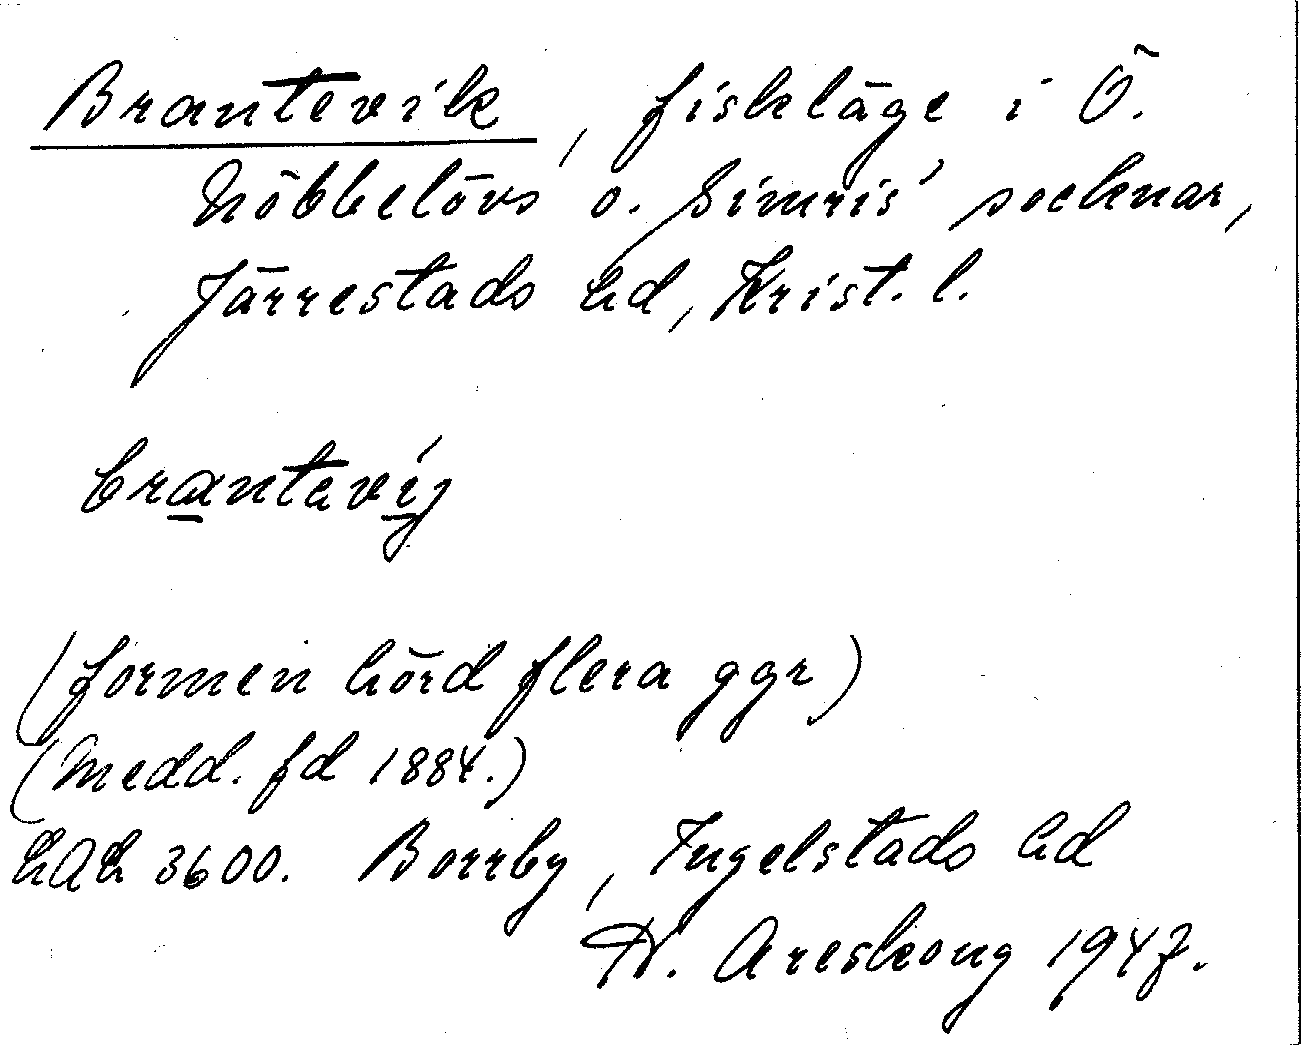 Brantevik, fiskläge i Ö.
Nöbbelövs o. Simris' socknar,
Järrestads hd, Krist. l.
brantavíj
(formen hörd flera ggr)
(Medd. fd 1884.)
LAL 3600. Borrby, Ingelstads hd
W. Areskoug 1947.